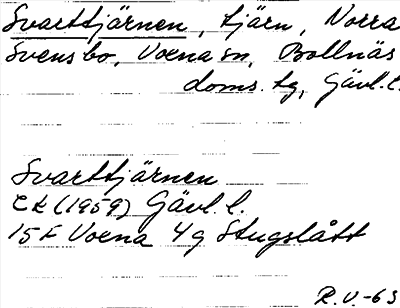 Svarttjärnen, tjärn, Norra
Svensbo, Voxna sn, Bollnäs
doms. tg, Gävl. l.
Svarttjärnen
EK (1959) Gävl. l.
15 F Voxna 4 g Stugslått
R.V.-63